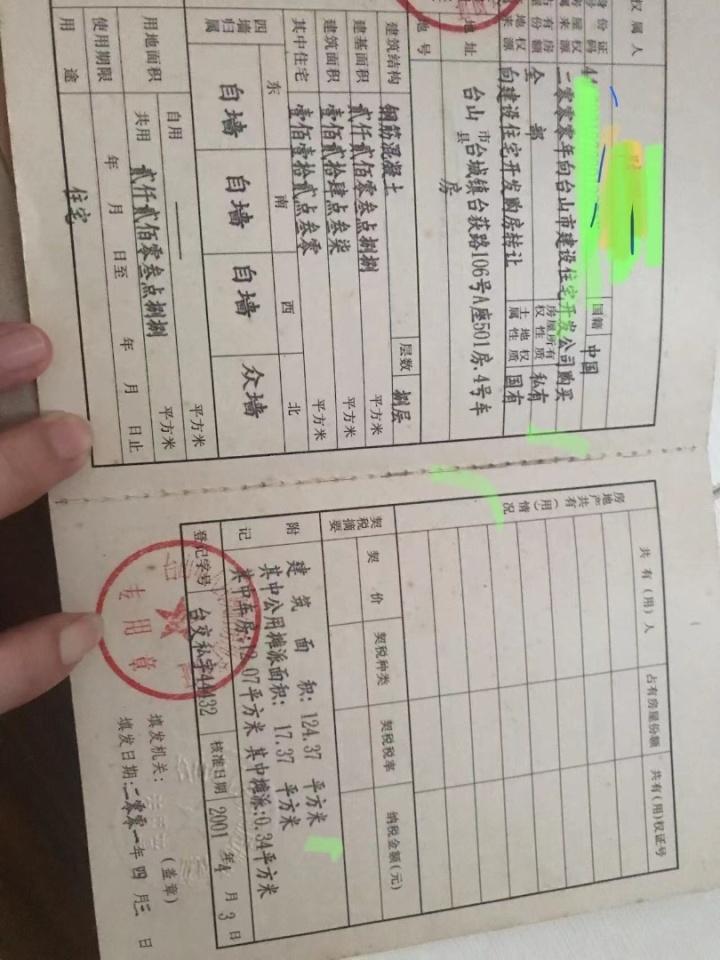 权属人
身份证 号码 4 国籍 中国
房屋权属来源 二零零零年向台山市建设住宅开发公司购买 房屋所有权性质 私有
占有房屋份额 全部
土地权属来源 向建设住宅开发购房转让 土地权属性质 国有
地址 台山市县台城镇台荻路106号A座501房.4号车房
地号
建筑结构 钢筋混凝土 层数 捌层
建基面积 贰仟贰佰零叁点捌捌 平方米
建筑面积 壹佰贰拾肆点叁柒 平方米
其中住宅 壹佰壹拾贰点叁零 平方米
四墙归属 东 南 西 北
自墙 自墙 自墙 众墙
用地面积 自用 —— 平方米
共用 贰仟贰佰零叁点捌捌 平方米
使用期限 年 月 日至 年 月 日止
用途 住宅
房地产共有(用)情况 共有(用)人 占有房屋份额 共有(用)权证号
契税摘要 契价 契税种类 契税税率 纳税金额(元)
附记
建筑面积: 124.37 平方米
其中公用摊派面积: 17.37 平方米
其中车房:12.07平方米 其中摊派:0.34平方米
登记字号 台交私字44432 核准日期 2001年4月3日
专用章
填发机关: (盖章)
填发日期:二零零一年四月三日